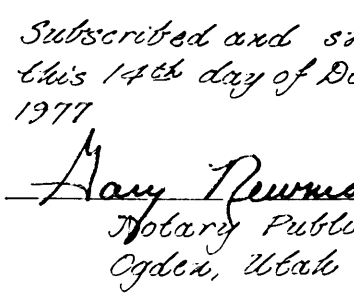 Subscribed and
this 14th day of
1977
Gary
Notary
Ogden, Utah